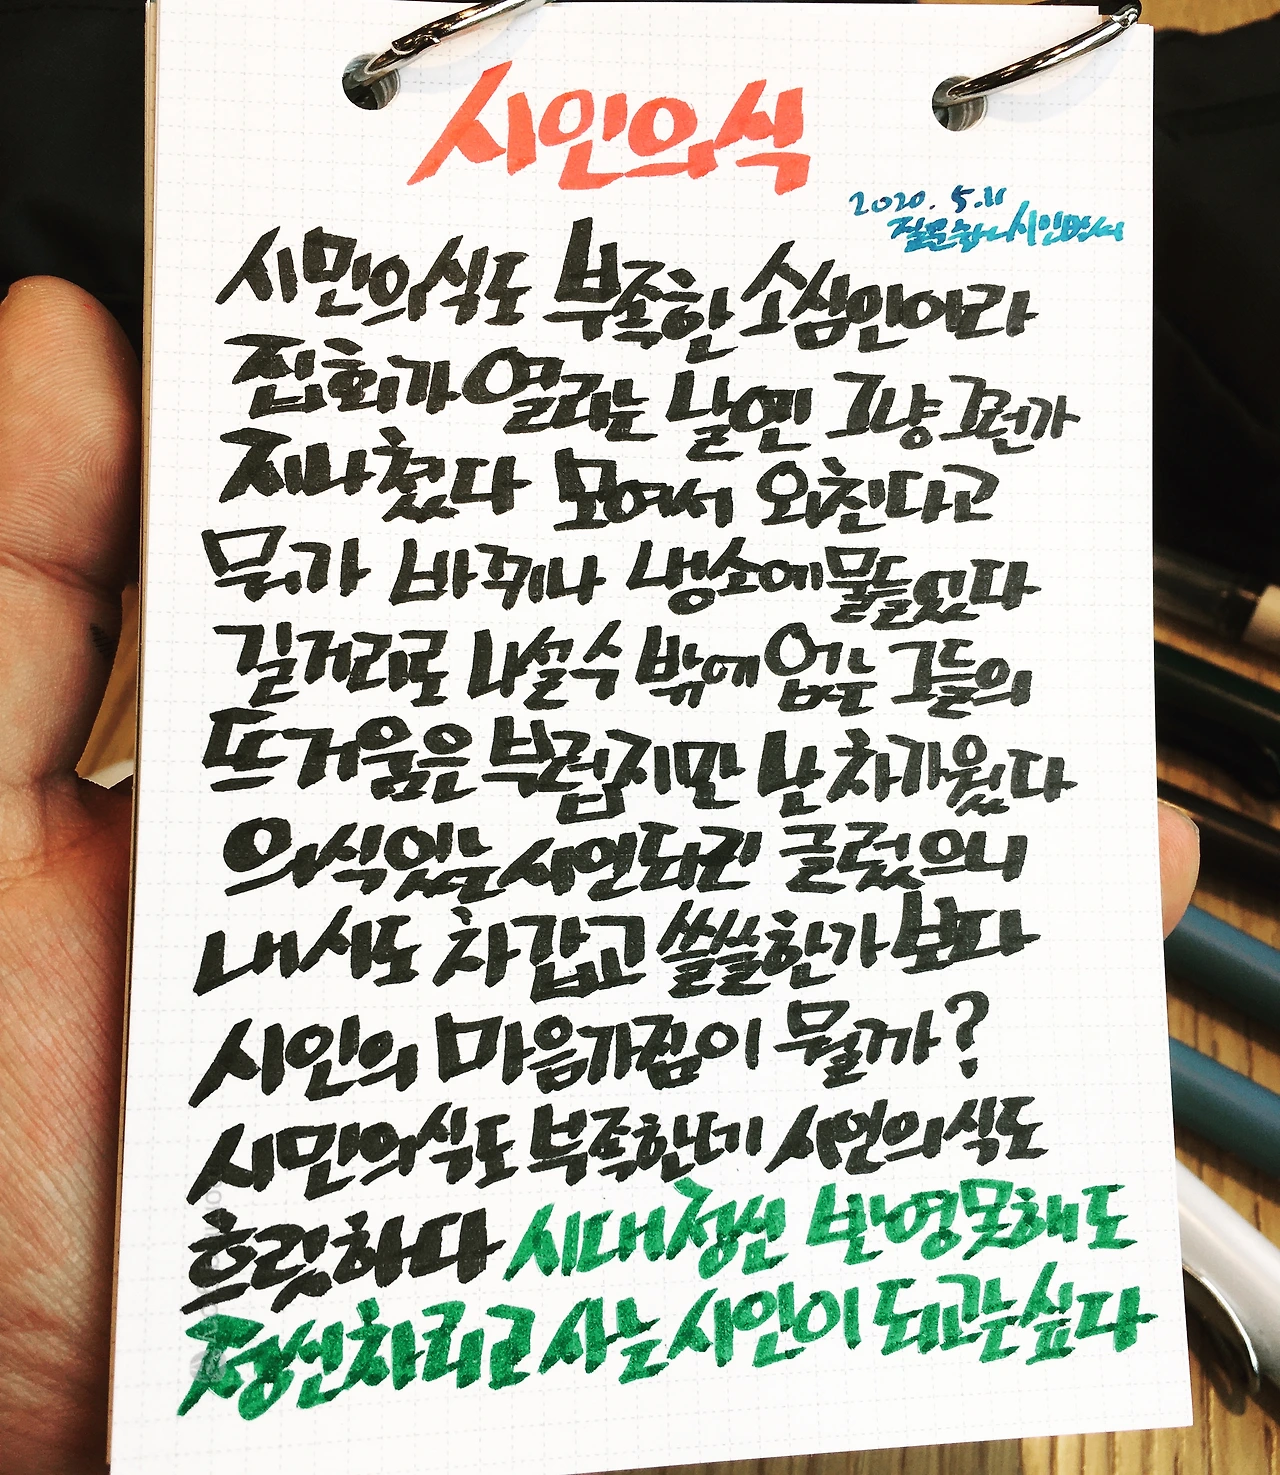 시인의식
2020. 5. 11
질문하는시인
시민의식도 부족한 소심인이라
집회가 열리는 날엔 그냥 그런가
지나쳤다 모여서 외친다고
뭐가 바뀌나 냉소에 물들었다
길거리로 나설 수 밖에 없는 그들의
뜨거움은 부럽지만 난 차가웠다
의식있는 시인되긴 글렀으니
내 시도 차갑고 쓸쓸한가 보다
시인의 마음가짐이 뭘까?
시민의식도 부족한데 시인의식도
흐릿하다 시대정신 반영못해도
정신차리고 사는 시인이 되고는싶다